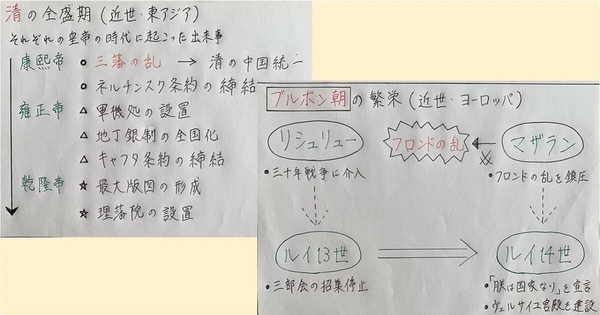 清の全盛期(近世・東アジア)
それぞれの皇帝の時代に起こった出来事
康熙帝 ○ 三藩の乱 → 清の中国統一
○ ネルチンスク条約の締結
雍正帝 △ 軍機処の設置
△ 地丁銀制の全国化
△ キャフタ条約の締結
乾隆帝 ☆ 最大版図の形成
☆ 理藩院の設置
ブルボン朝の繁栄(近世・ヨーロッパ)
リシュリュー フロンドの乱 マザラン
・三十年戦争に介入 ・フロンドの乱を鎮圧
ルイ13世 ルイ14世
・三部会の招集停止 ・「朕は国家なり」を宣言
・ヴェルサイユ宮殿を建設